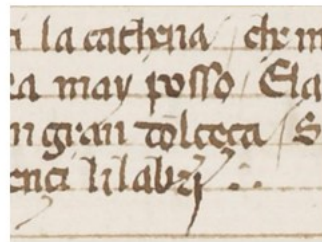 i la cathena / che m
ra may posso / Ela
n gran dolceça / S
enci li labrj